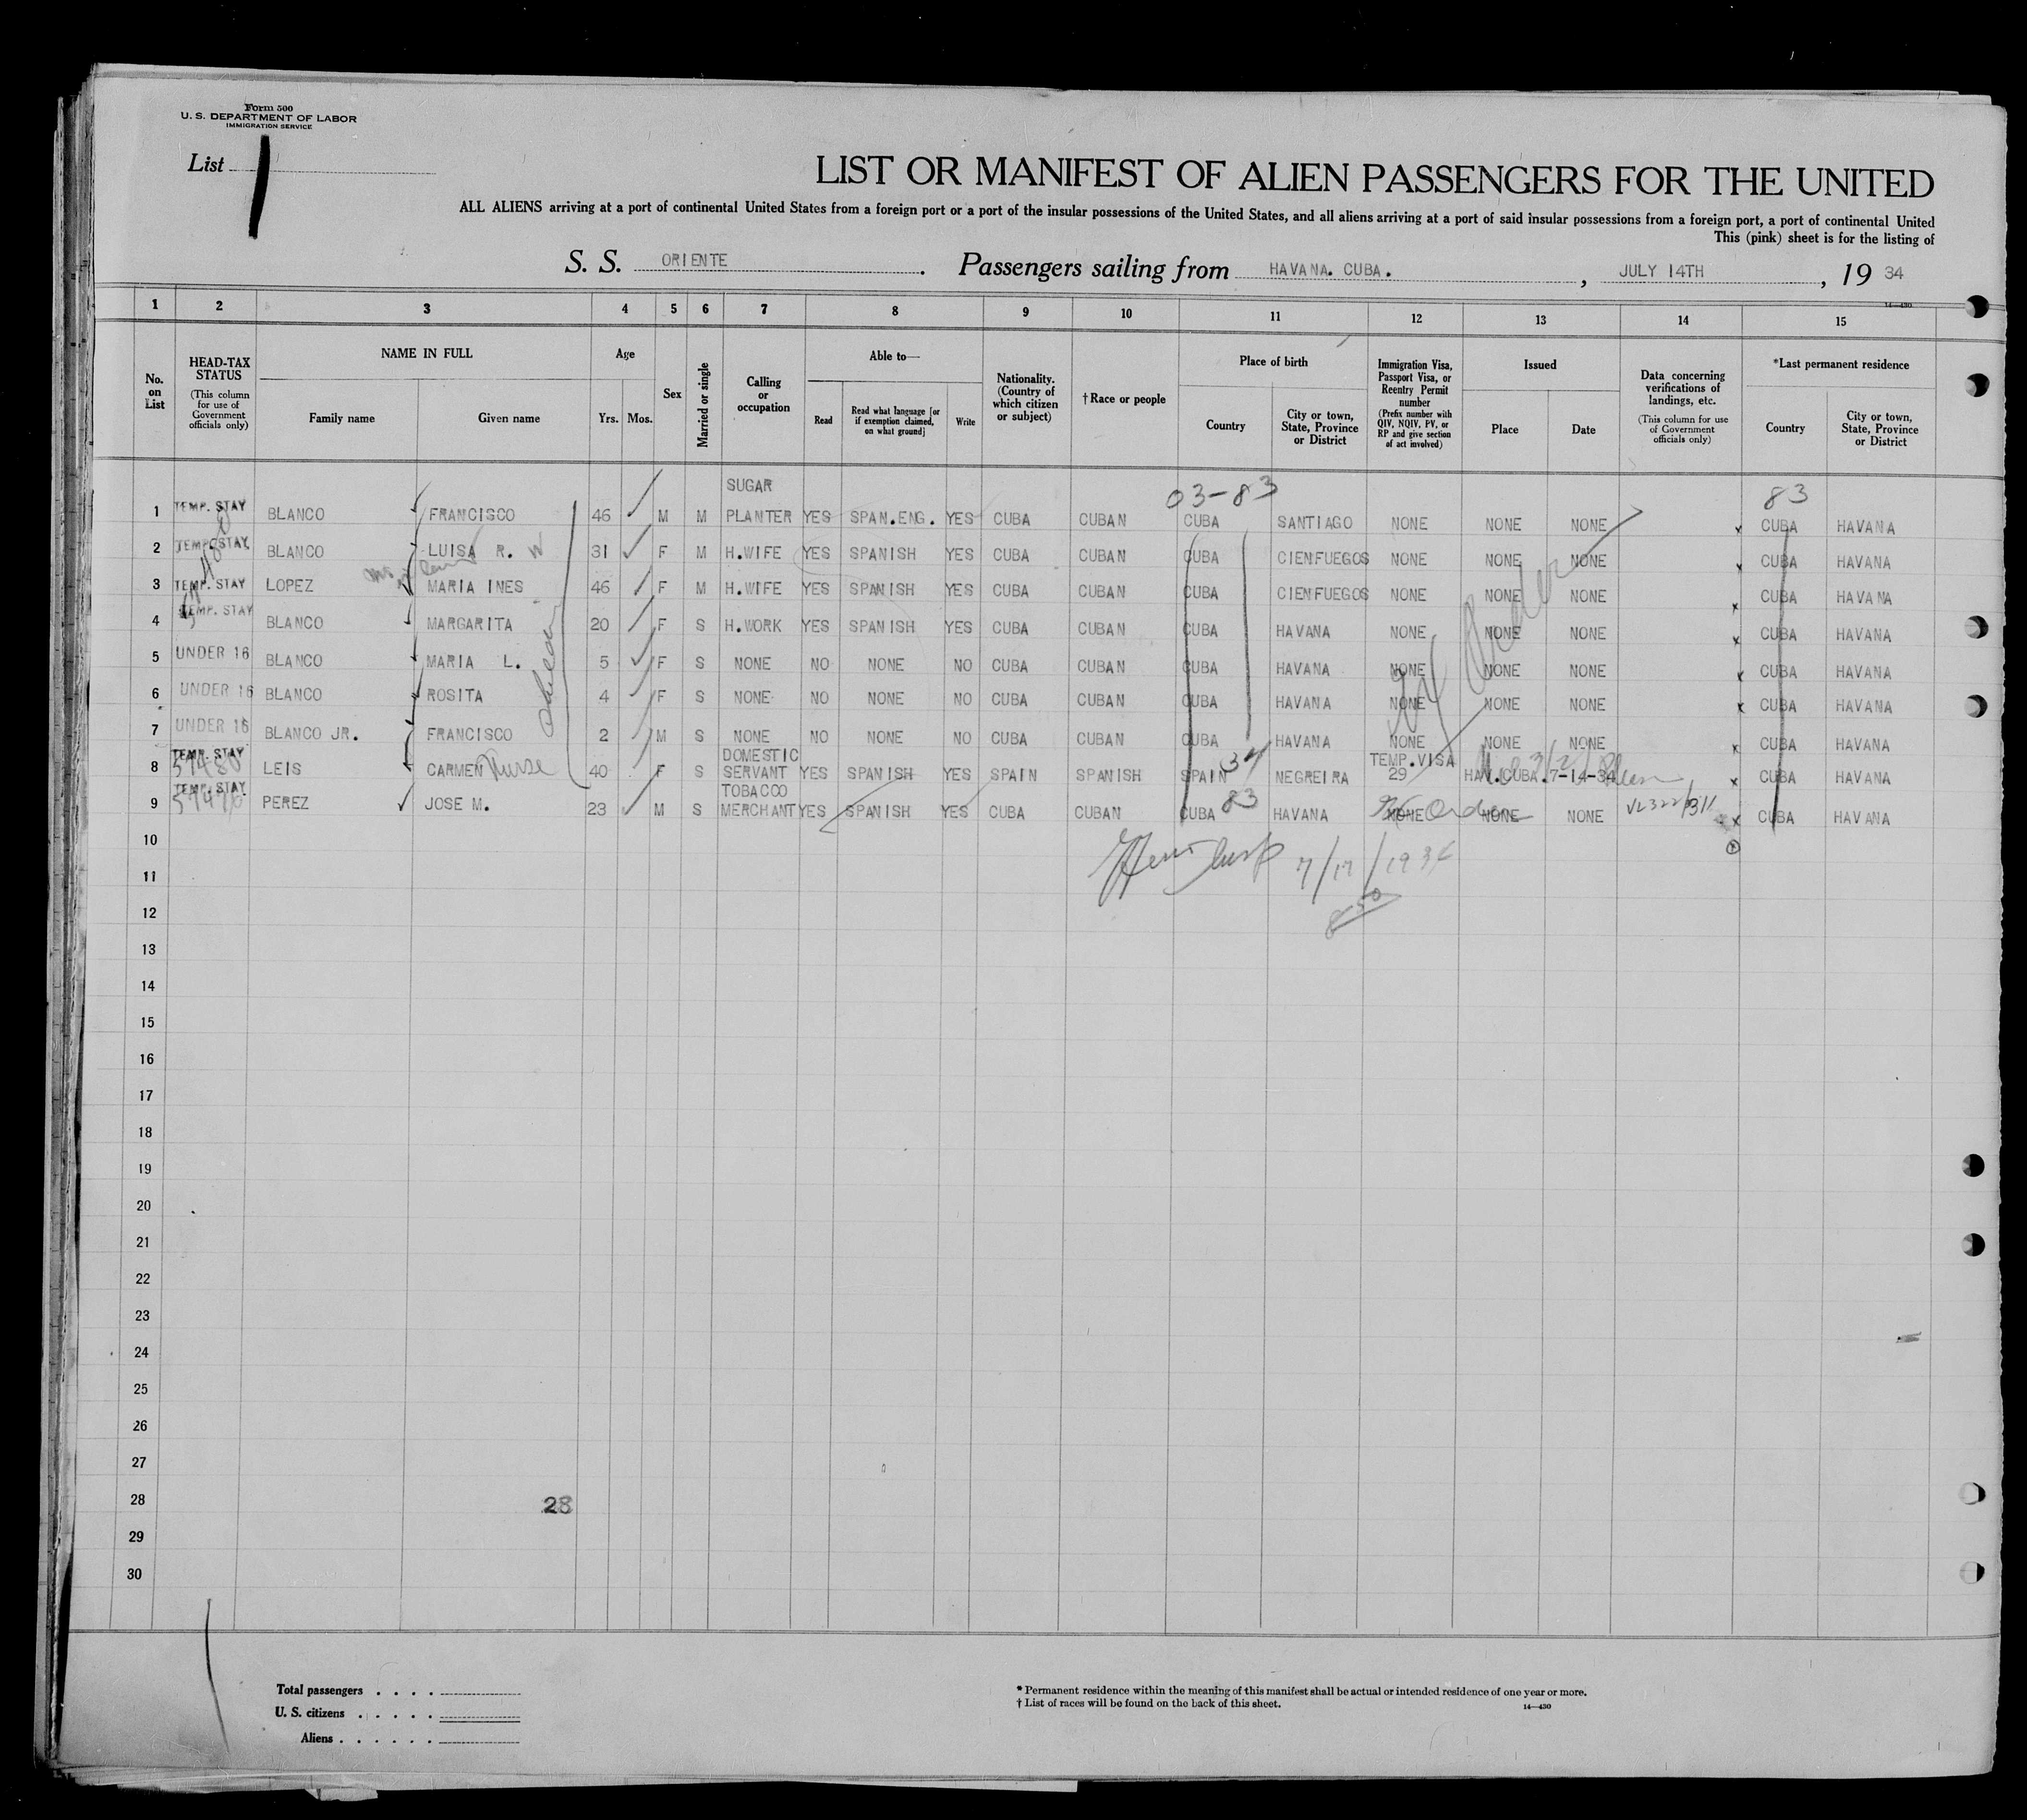 Form 500
U. S. DEPARTMENT OF LABOR
IMMIGRATION SERVICE
List
LIST OR MANIFEST OF ALIEN PASSENGERS FOR THE UNITED
ALL ALIENS arriving at a port of continental United States from a foreign port or a port of the insular possessions of the United States, and all aliens arriving at a port of said insular possessions from a foreign port, a port of continental United
This (pink) sheet is for the listing of
S. S. ORIENTE. Passengers sailing from HAVANA. CUBA. , JULY 14TH , 19 34
14—430
1 2 3 4 5 6 7 8 9 10 11 12 13 14 15
No. on List
HEAD-TAX STATUS
(This column for use of Government officials only)
NAME IN FULL
Family name
Given name
Age
Yrs. Mos.
Sex
Married or single
Calling or occupation
Able to—
Read
Read what language [or if exemption claimed, on what ground]
Write
Nationality. (Country of which citizen or subject)
†Race or people
Place of birth
Country
City or town, State, Province or District
Immigration Visa, Passport Visa, or Reentry Permit number
(Prefix number with QIV, NQIV, PV, or RP and give section of act involved)
Issued
Place
Date
Data concerning verifications of landings, etc.
(This column for use of Government officials only)
*Last permanent residence
Country
City or town, State, Province or District
03-83 83
1 TEMP. STAY BLANCO FRANCISCO 46 M M SUGAR PLANTER YES SPAN.ENG. YES CUBA CUBAN CUBA SANTIAGO NONE NONE NONE CUBA HAVANA
2 TEMP. STAY BLANCO LUISA R. W 31 F M H.WIFE YES SPANISH YES CUBA CUBAN CUBA CIENFUEGOS NONE NONE NONE CUBA HAVANA
3 TEMP. STAY LOPEZ MARIA INES 46 F M H.WIFE YES SPANISH YES CUBA CUBAN CUBA CIENFUEGOS NONE NONE NONE CUBA HAVANA
4 TEMP. STAY BLANCO MARGARITA 20 F S H.WORK YES SPANISH YES CUBA CUBAN CUBA HAVANA NONE NONE NONE CUBA HAVANA
5 UNDER 16 BLANCO MARIA L. 5 F S NONE NO NONE NO CUBA CUBAN CUBA HAVANA NONE NONE NONE CUBA HAVANA
6 UNDER 16 BLANCO ROSITA 4 F S NONE NO NONE NO CUBA CUBAN CUBA HAVANA NONE NONE NONE CUBA HAVANA
7 UNDER 16 BLANCO JR. FRANCISCO 2 M S NONE NO NONE NO CUBA CUBAN CUBA HAVANA NONE NONE NONE CUBA HAVANA
8 TEMP. STAY LEIS CARMEN Nurse 40 F S DOMESTIC SERVANT YES SPANISH YES SPAIN SPANISH SPAIN NEGREIRA TEMP.VISA 29 HAV.CUBA. 7-14-34 CUBA HAVANA
9 TEMP. STAY PEREZ JOSE M. 23 M S TOBACCO MERCHANT YES SPANISH YES CUBA CUBAN CUBA 83 HAVANA NONE NONE NONE CUBA HAVANA
10
11 7/17/1934
12
13
14
15
16
17
18
19
20
21
22
23
24
25
26
27
28 28
29
30
Total passengers . . . .
U. S. citizens . . . . .
Aliens . . . . . .
* Permanent residence within the meaning of this manifest shall be actual or intended residence of one year or more.
† List of races will be found on the back of this sheet.
14—430